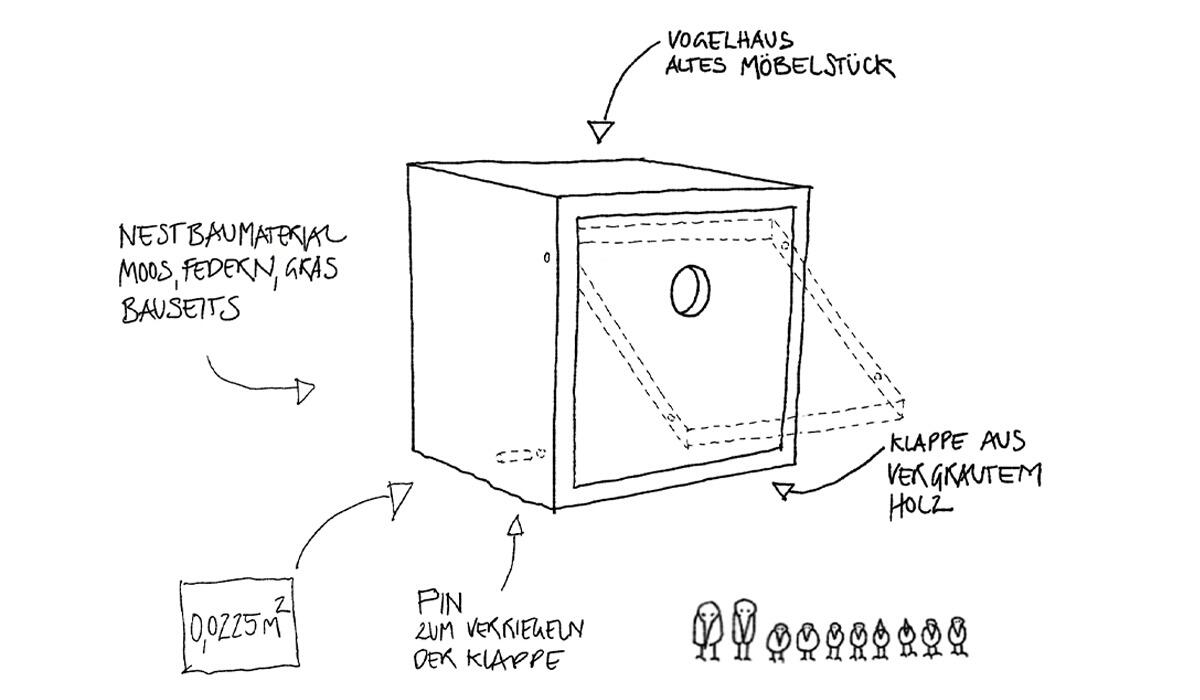 VOGELHAUS
ALTES MÖBELSTÜCK
NESTBAUMATERIAL
MOOS, FEDERN, GRAS
BAUSEITS
KLAPPE AUS
VERGRAUTEM
HOLZ
0,0225m²
PIN
ZUM VERRIEGELN
DER KLAPPE